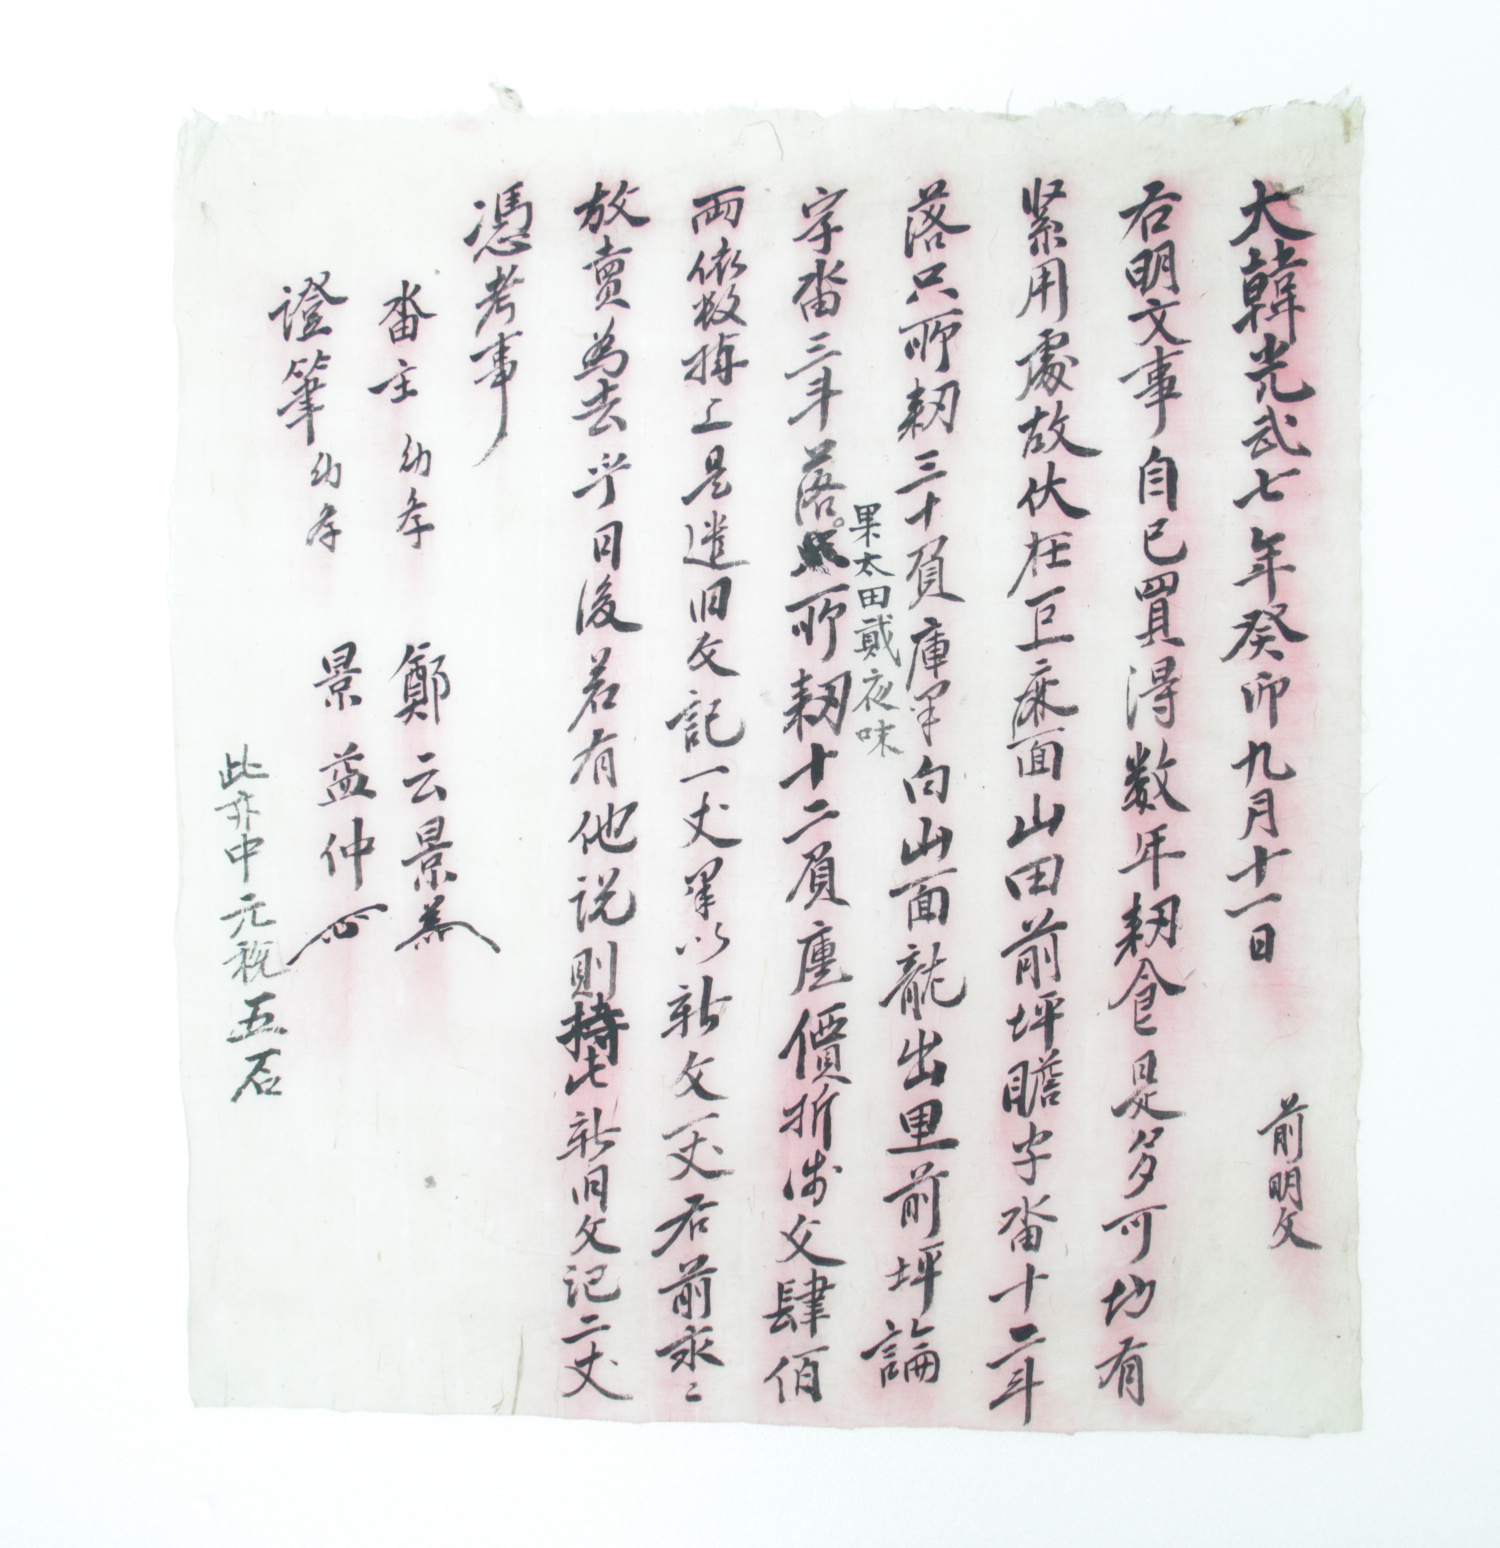 大韓光武七年癸卯九月十一日 前明文
右明文事自己買得数年耕食是多可切有
緊用處故伏在巨麻面山田前坪瞻字畓十二斗
落只所耕三十負庫果白山面龍出里前坪論
果太田貳夜味
字畓三斗落所耕十二負庫價折錢文肆佰
兩依数捧上是遣旧文記一丈果以新文一丈右前永〻
放賣為去乎日後若有他説則持此新旧文記二丈
憑考事
畓主 幼孝 鄭云景
證筆 幼孝 景益仲
此亦中元税五石